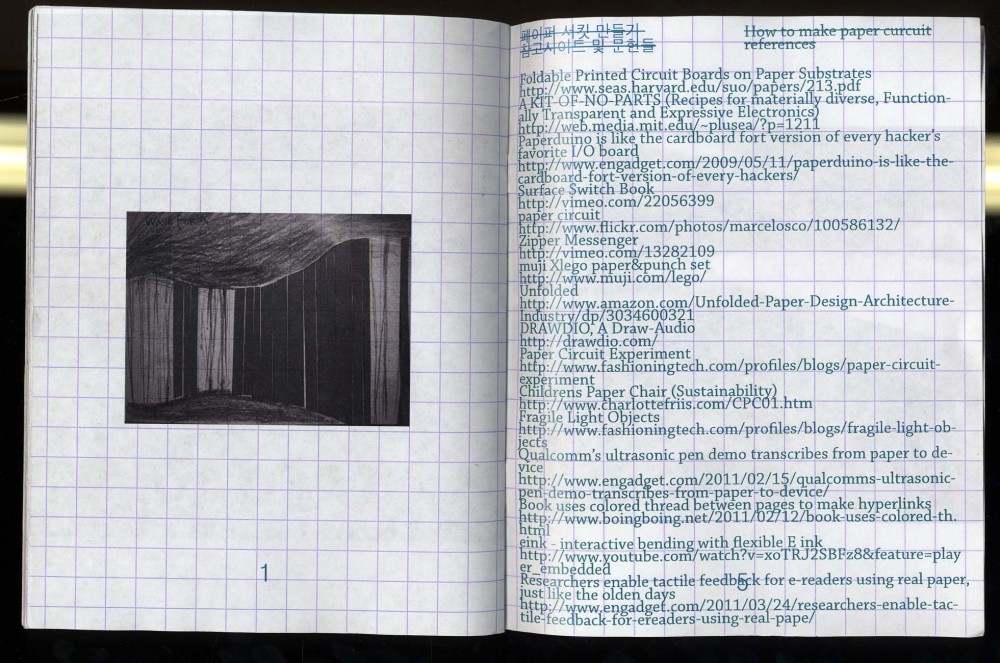 1
페이퍼 서킷 만들기
참고사이트 및 문헌들
How to make paper curcuit
references
Foldable Printed Circuit Boards on Paper Substrates
http://www.seas.harvard.edu/suo/papers/213.pdf
A KIT-OF-NO-PARTS (Recipes for materially diverse, Function-
ally Transparent and Expressive Electronics)
http://web.media.mit.edu/~plusea/?p=1211
Paperduino is like the cardboard fort version of every hacker's
favorite I/O board
http://www.engadget.com/2009/05/11/paperduino-is-like-the-
cardboard-fort-version-of-every-hackers/
Surface Switch Book
http://vimeo.com/22056399
paper circuit
http://www.flickr.com/photos/marcelosco/100586132/
Zipper Messenger
http://vimeo.com/13282109
muji Xlego paper&punch set
http://www.muji.com/lego/
Unfolded
http://www.amazon.com/Unfolded-Paper-Design-Architecture-
Industry/dp/3034600321
DRAWDIO, A Draw-Audio
http://drawdio.com/
Paper Circuit Experiment
http://www.fashioningtech.com/profiles/blogs/paper-circuit-
experiment
Childrens Paper Chair (Sustainability)
http://www.charlottefriis.com/CPC01.htm
Fragile Light Objects
http://www.fashioningtech.com/profiles/blogs/fragile-light-ob-
jects
Qualcomm's ultrasonic pen demo transcribes from paper to de-
vice
http://www.engadget.com/2011/02/15/qualcomms-ultrasonic-
pen-demo-transcribes-from-paper-to-device/
Book uses colored thread between pages to make hyperlinks
http://www.boingboing.net/2011/02/12/book-uses-colored-th.
html
eink - interactive bending with flexible E ink
http://www.youtube.com/watch?v=xoTRJ2SBFz8&feature=play
er_embedded
Researchers enable tactile feedback for e-readers using real paper,
just like the olden days
http://www.engadget.com/2011/03/24/researchers-enable-tac-
tile-feedback-for-ereaders-using-real-pape/
5